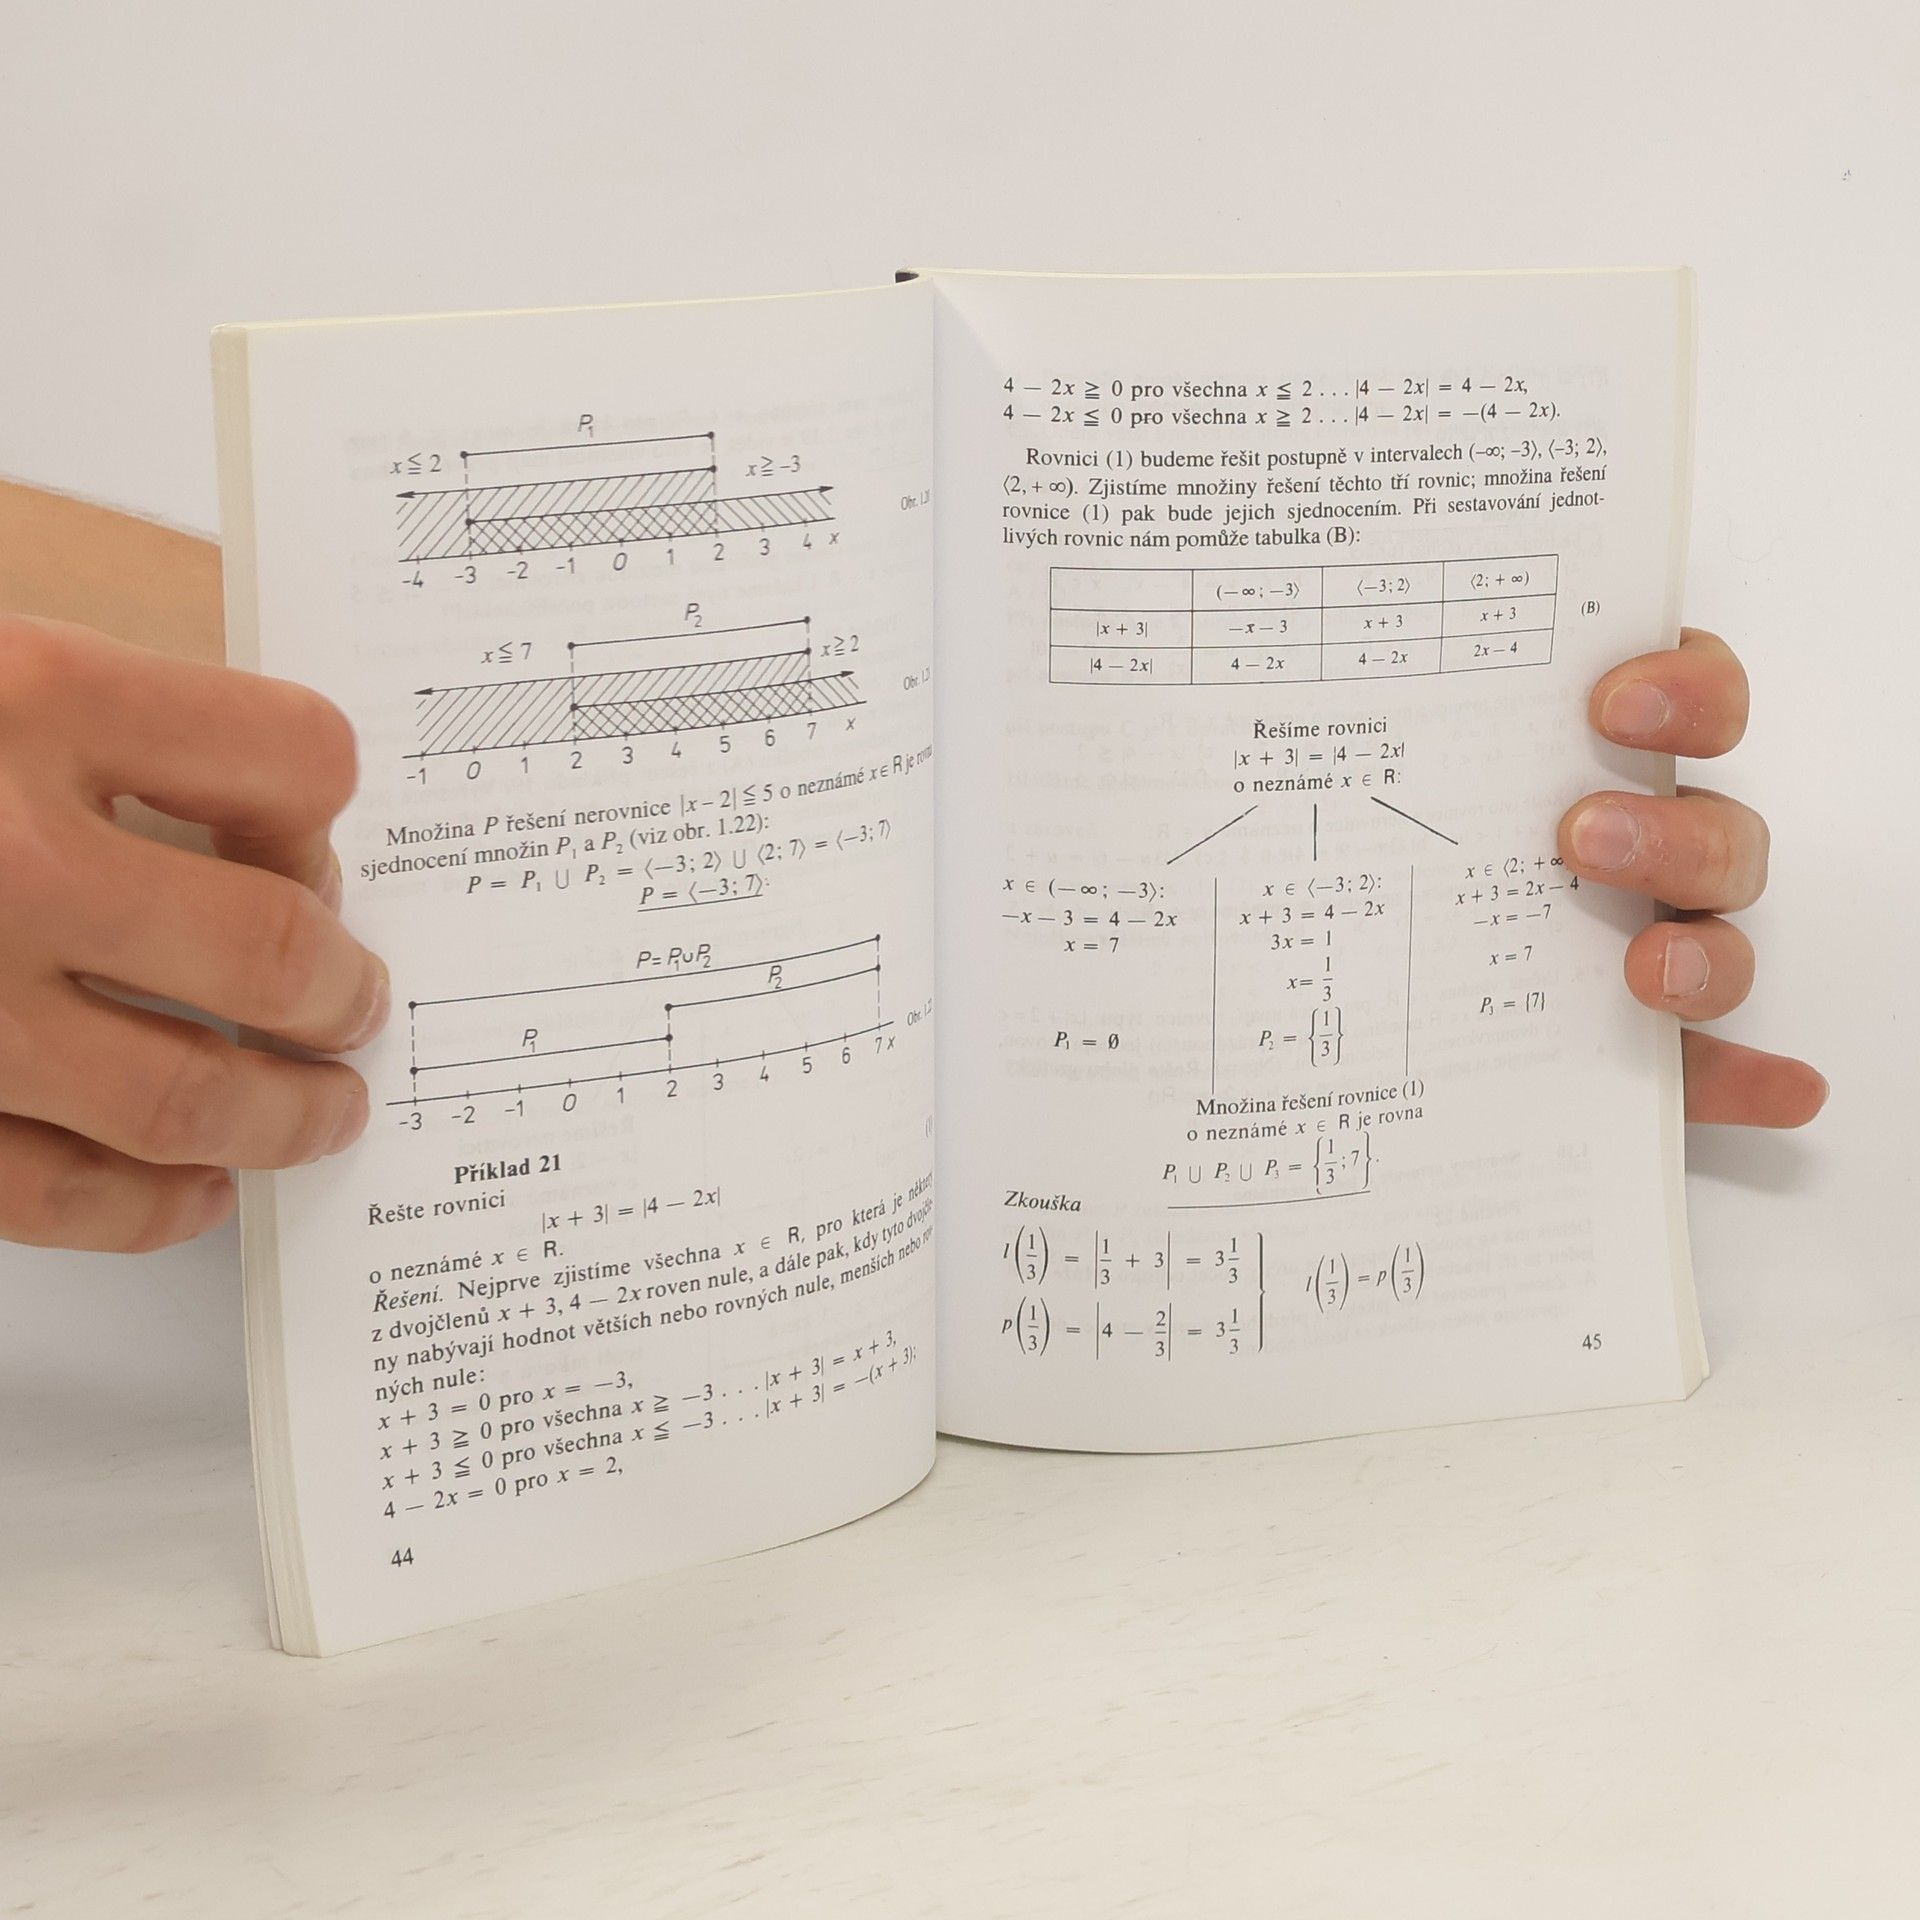 P₁
x ≦ 2
x ≧ -3
Obr. 1.20
-4 -3 -2 -1 0 1 2 3 4 x
P₂
x ≦ 7
x ≧ 2
-1 0 1 2 3 4 5 6 7 x
Množina P řešení nerovnice |x – 2| ≦ 5 o neznámé x ∈ R je
sjednocení množin P₁ a P₂ (viz obr. 1.22):
P = P₁ ∪ P₂ = ⟨–3; 2⟩ ∪ ⟨2; 7⟩ = ⟨–3; 7⟩
P = ⟨–3; 7⟩:
P = P₁ ∪ P₂
P₂
P₁
-3 -2 -1 0 1 2 3 4 5 6 7 x
(1)
Příklad 21
Řešte rovnici
|x + 3| = |4 — 2x|
o neznámé x ∈ R.
Řešení. Nejprve zjistíme všechna x ∈ R, pro která je
z dvojčlenů x + 3, 4 — 2x roven nule, a dále pak, kdy tyto
ny nabývají hodnot větších nebo rovných nule, menších nebo
ných nule:
x + 3 = 0 pro x = —3,
x + 3 ≧ 0 pro všechna x ≧ —3 . . . |x + 3| = x + 3,
x + 3 ≦ 0 pro všechna x ≦ —3 . . . |x + 3| = —(x + 3);
4 — 2x = 0 pro x = 2,
44
4 — 2x ≧ 0 pro všechna x ≦ 2 . . . |4 — 2x| = 4 — 2x,
4 — 2x ≦ 0 pro všechna x ≧ 2 . . . |4 — 2x| = —(4 — 2x).
Rovnici (1) budeme řešit postupně v intervalech (–∞; –3⟩, ⟨–3; 2⟩,
⟨2, + ∞). Zjistíme množiny řešení těchto tří rovnic; množina řešení
rovnice (1) pak bude jejich sjednocením. Při sestavování jednot-
livých rovnic nám pomůže tabulka (B):
(— ∞; —3⟩ ⟨—3; 2⟩ ⟨2; + ∞)
|x + 3| —x — 3 x + 3 x + 3 (B)
|4 — 2x| 4 — 2x 4 — 2x 2x — 4
Řešíme rovnici
|x + 3| = |4 — 2x|
o neznámé x ∈ R:
x ∈ (— ∞; —3⟩: x ∈ ⟨—3; 2⟩: x ∈ ⟨2; + ∞
—x — 3 = 4 — 2x x + 3 = 4 — 2x x + 3 = 2x — 4
x = 7 3x = 1 —x = —7
x = 1/3 x = 7
P₁ = Ø P₂ = {1/3} P₃ = {7}
Množina řešení rovnice (1)
o neznámé x ∈ R je rovna
P₁ ∪ P₂ ∪ P₃ = {1/3; 7}.
Zkouška
l(1/3) = |1/3 + 3| = 3 1/3
l(1/3) = p(1/3)
p(1/3) = |4 — 2/3| = 3 1/3
45